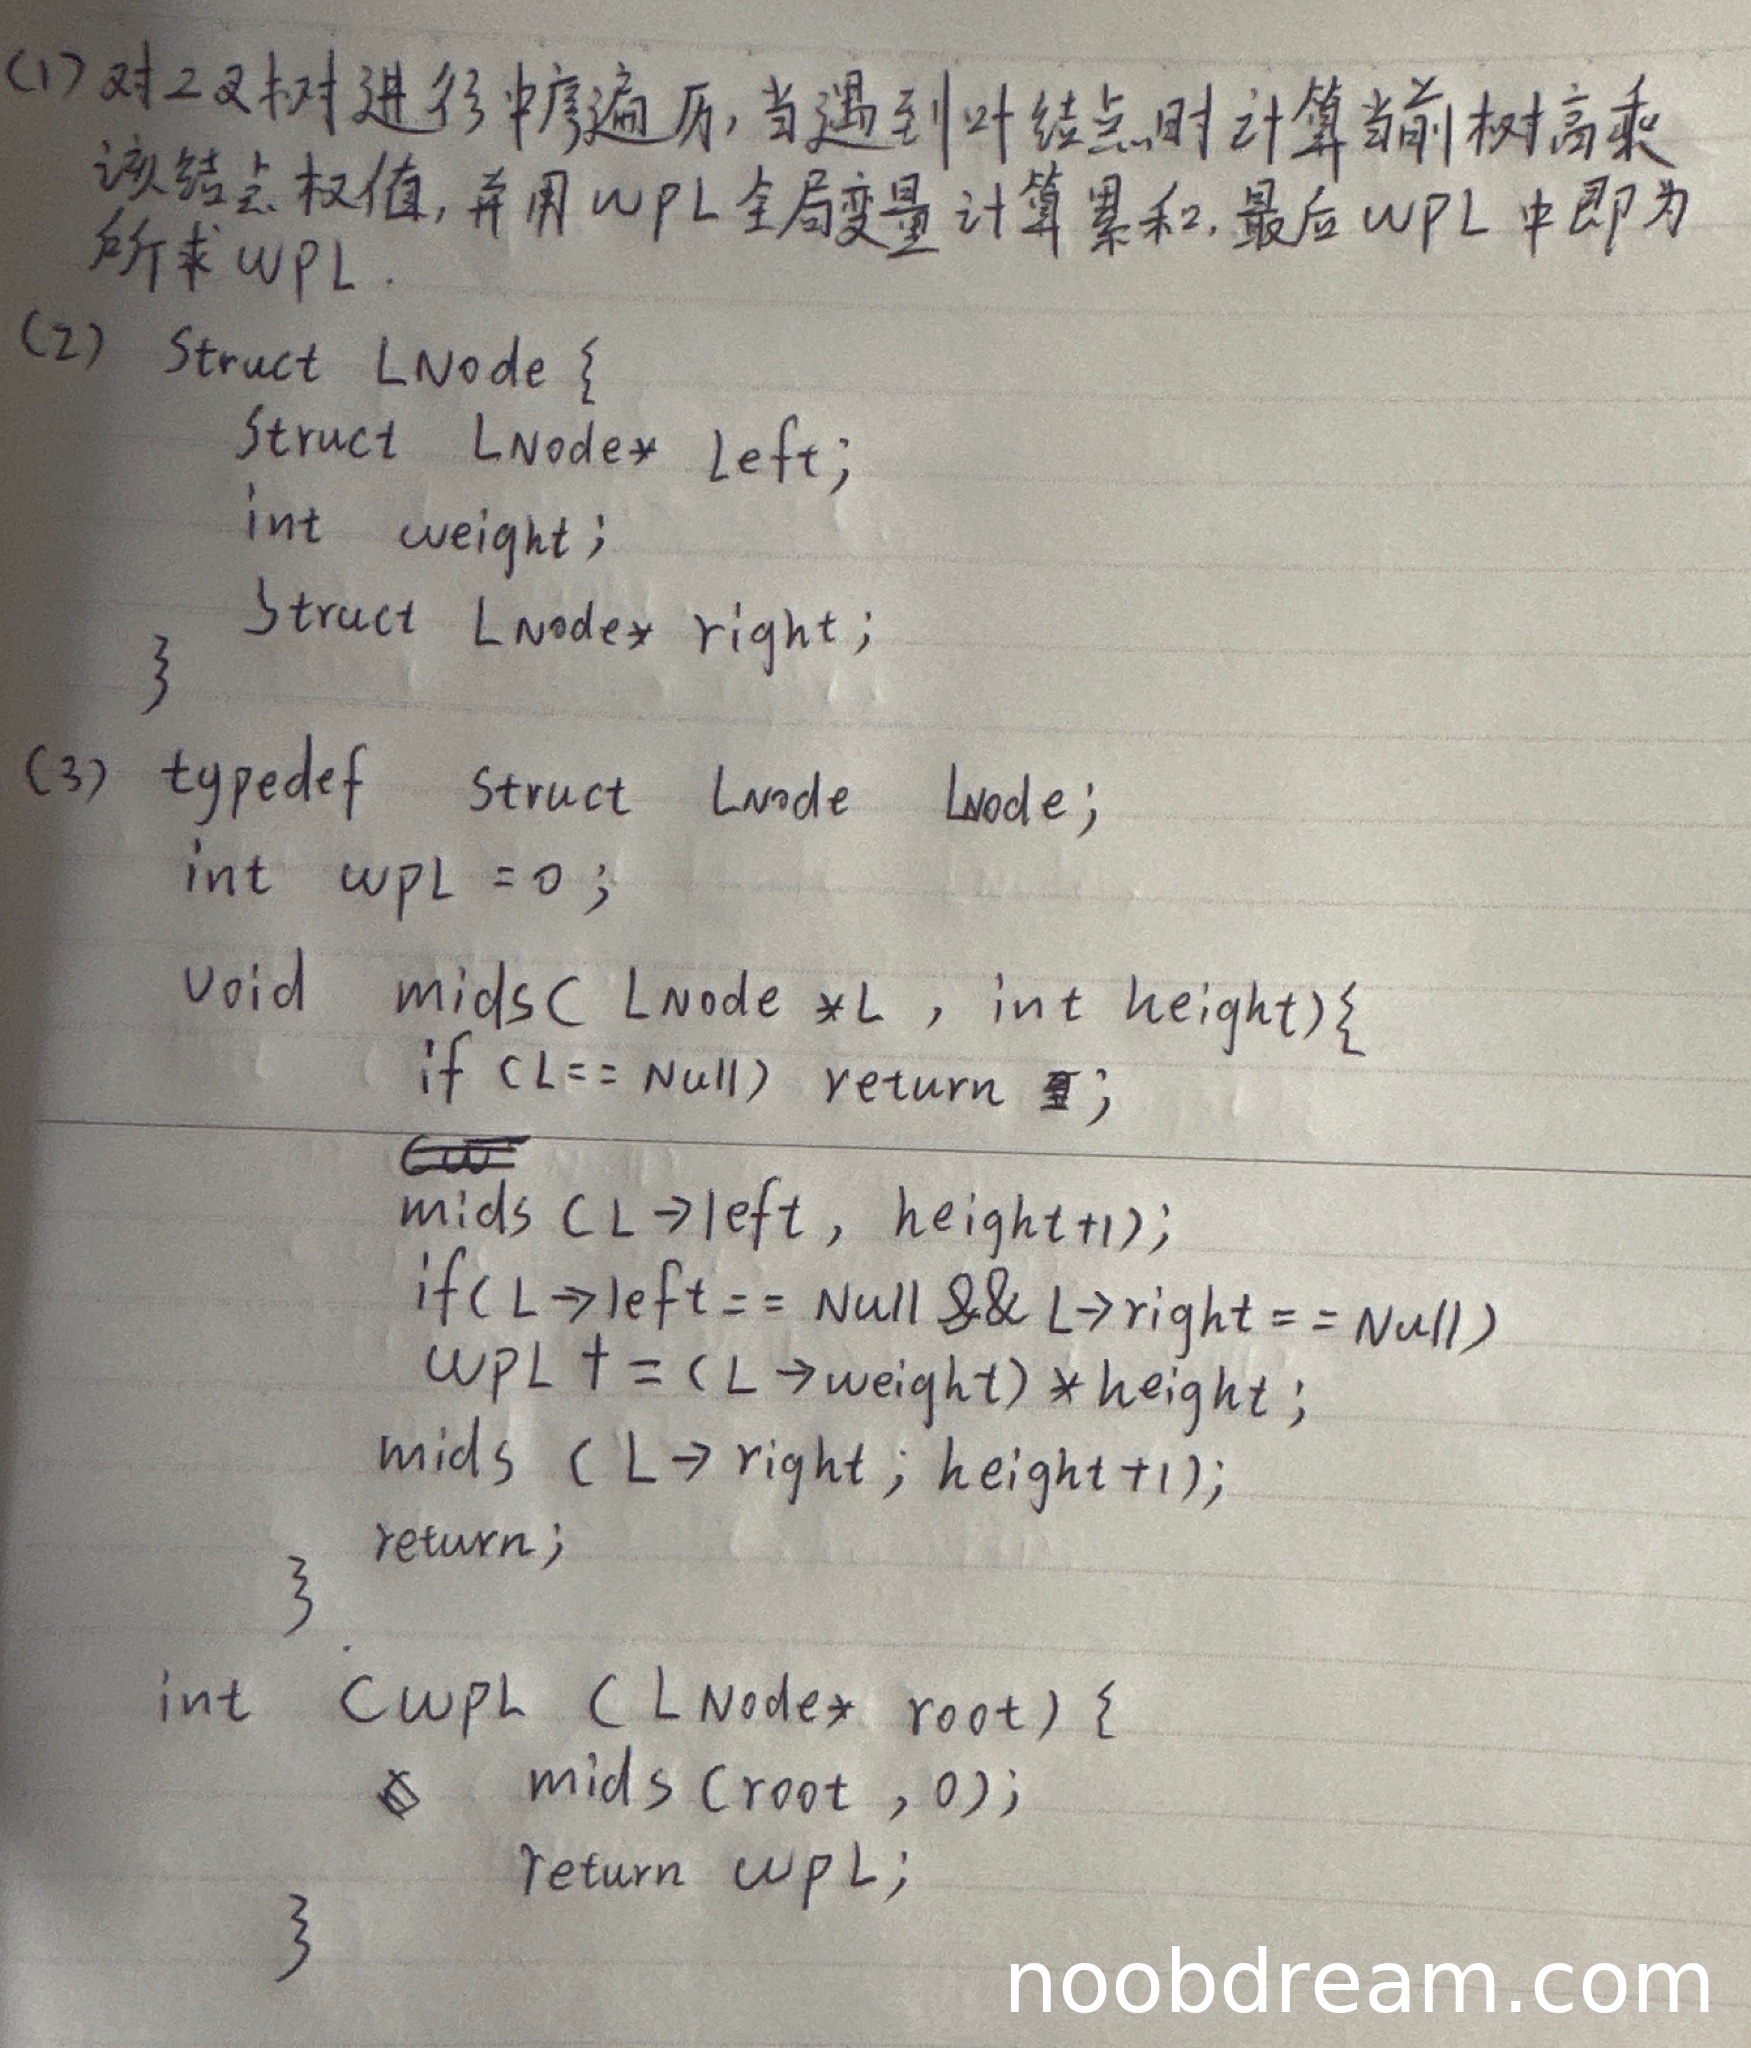 (1) 对二叉树进行中序遍历,当遇到叶结点时计算当前树高乘
该结点权值,并用WPL全局变量计算累和,最后WPL中即为
所求WPL.
(2) Struct LNode {
Struct LNode* left;
int weight;
Struct LNode* right;
}
(3) typedef Struct LNode LNode;
int WPL = 0;
void mids( LNode *L , int height){
if (L== Null) return ;
mids (L→left, height+1);
if(L→left== Null && L→right== Null)
WPL += (L→weight)*height;
mids (L→right; height+1);
return;
}
int CWPL (LNode* root) {
mids (root , 0);
return WPL;
}
noobdream.com